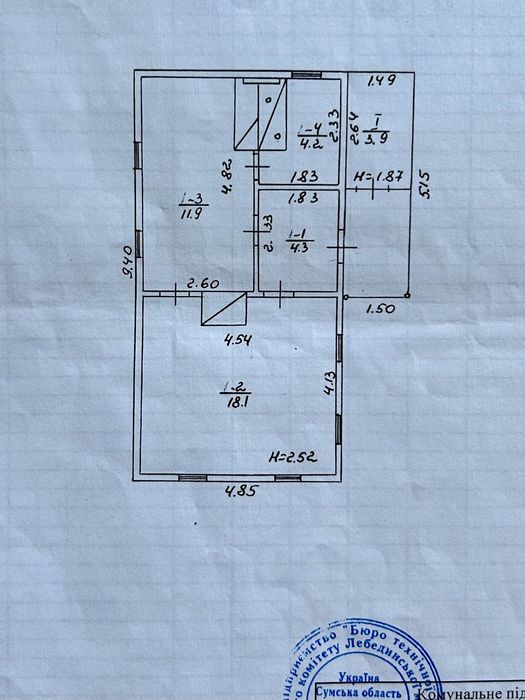 1.49
2.64
I
3.9
1-4
4.2
2.33
4.82
1.83
H=1.87
5.15
1-3
11.9
1.83
2.33
1-1
4.3
9.40
2.60
1.50
4.54
4.13
1-2
18.1
H=2.52
4.85
"Бюро технічно
комітету Лебединської
Україна
Сумська область
Комунальне під